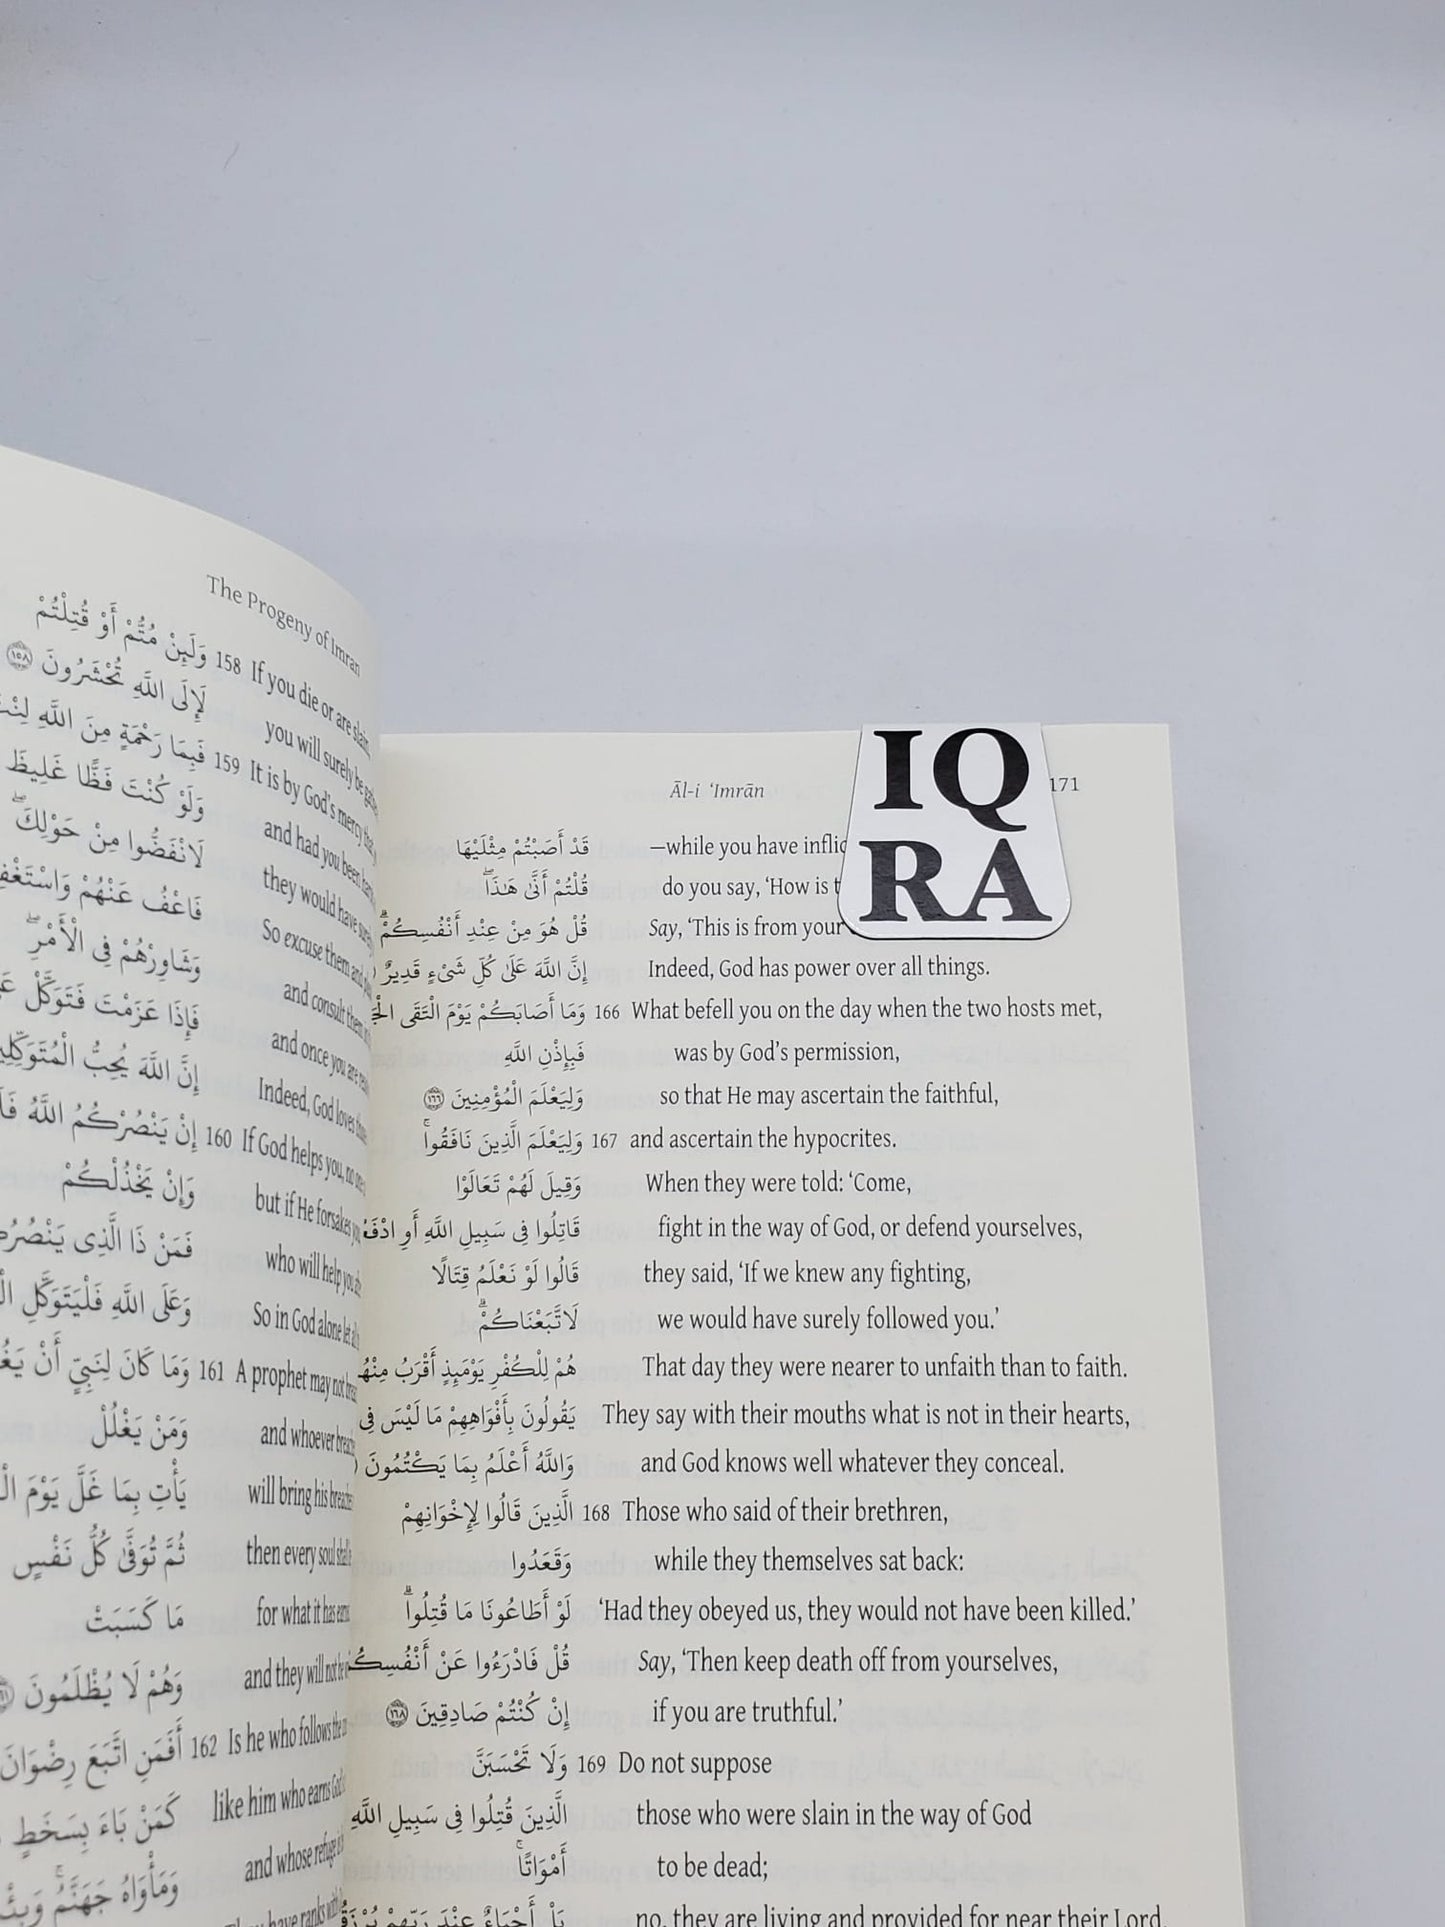 The Progeny of Imran
وَلَئِنْ مُتُّمْ أَوْ قُتِلْتُمْ 158 If you die or are slain,
لَإِلَى اللَّهِ تُحْشَرُونَ ۝١٥٨ you will surely be
فَبِمَا رَحْمَةٍ مِنَ اللَّهِ 159 It is by God’s mercy
وَلَوْ كُنْتَ فَظًّا غَلِيظَ and had you been
لَانْفَضُّوا مِنْ حَوْلِكَ ۖ they would have
فَاعْفُ عَنْهُمْ So excuse them and
وَشَاوِرْهُمْ فِى الْأَمْرِ ۖ and consult them
فَإِذَا عَزَمْتَ فَتَوَكَّلْ and once you are
إِنَّ اللَّهَ يُحِبُّ Indeed, God loves
إِنْ يَنْصُرْكُمُ اللَّهُ 160 If God helps you, no
وَإِنْ يَخْذُلْكُمْ but if He forsakes
فَمَنْ ذَا الَّذِى who will help
وَعَلَى اللَّهِ فَلْيَتَوَكَّلِ So in God alone let
وَمَا كَانَ لِنَبِيٍّ أَنْ 161 A prophet may not
وَمَنْ يَغْلُلْ and whoever
يَأْتِ بِمَا غَلَّ يَوْمَ will bring his
ثُمَّ تُوَفَّىٰ كُلُّ نَفْسٍ then every soul
مَا كَسَبَتْ for what it has
وَهُمْ لَا يُظْلَمُونَ and they will not
أَفَمَنِ اتَّبَعَ رِضْوَانَ 162 Is he who follows
كَمَنْ بَاءَ بِسَخَطٍ like him who earns
وَمَأْوَاهُ جَهَنَّمُ ۚ and whose refuge
have ranks
Āl-i ‘Imrān 171
IQ
RA
قَدْ أَصَبْتُمْ مِثْلَيْهَا —while you have
قُلْتُمْ أَنَّىٰ هَـٰذَا ۖ do you say, ‘How is
قُلْ هُوَ مِنْ عِنْدِ أَنْفُسِكُمْ ۗ Say, ‘This is from your
إِنَّ اللَّهَ عَلَىٰ كُلِّ شَىْءٍ قَدِيرٌ Indeed, God has power over all things.
وَمَا أَصَابَكُمْ يَوْمَ الْتَقَى 166 What befell you on the day when the two hosts met,
فَبِإِذْنِ اللَّهِ was by God’s permission,
وَلِيَعْلَمَ الْمُؤْمِنِينَ ۝١٦٦ so that He may ascertain the faithful,
وَلِيَعْلَمَ الَّذِينَ نَافَقُوا ۚ 167 and ascertain the hypocrites.
وَقِيلَ لَهُمْ تَعَالَوْا When they were told: ‘Come,
قَاتِلُوا فِى سَبِيلِ اللَّهِ أَوِ fight in the way of God, or defend yourselves,
قَالُوا لَوْ نَعْلَمُ قِتَالًا they said, ‘If we knew any fighting,
لَاتَّبَعْنَاكُمْ ۗ we would have surely followed you.’
هُمْ لِلْكُفْرِ يَوْمَئِذٍ أَقْرَبُ That day they were nearer to unfaith than to faith.
يَقُولُونَ بِأَفْوَاهِهِمْ مَا لَيْسَ فِى They say with their mouths what is not in their hearts,
وَاللَّهُ أَعْلَمُ بِمَا يَكْتُمُونَ and God knows well whatever they conceal.
الَّذِينَ قَالُوا لِإِخْوَانِهِمْ 168 Those who said of their brethren,
وَقَعَدُوا while they themselves sat back:
لَوْ أَطَاعُونَا مَا قُتِلُوا ۗ ‘Had they obeyed us, they would not have been killed.’
قُلْ فَادْرَءُوا عَنْ Say, ‘Then keep death off from yourselves,
إِنْ كُنْتُمْ صَادِقِينَ ۝١٦٨ if you are truthful.’
وَلَا تَحْسَبَنَّ 169 Do not suppose
الَّذِينَ قُتِلُوا فِى سَبِيلِ اللَّهِ those who were slain in the way of God
أَمْوَاتًا ۚ to be dead;
بَلْ أَحْيَاءٌ عِنْدَ رَبِّهِمْ no, they are living and provided for near their Lord,